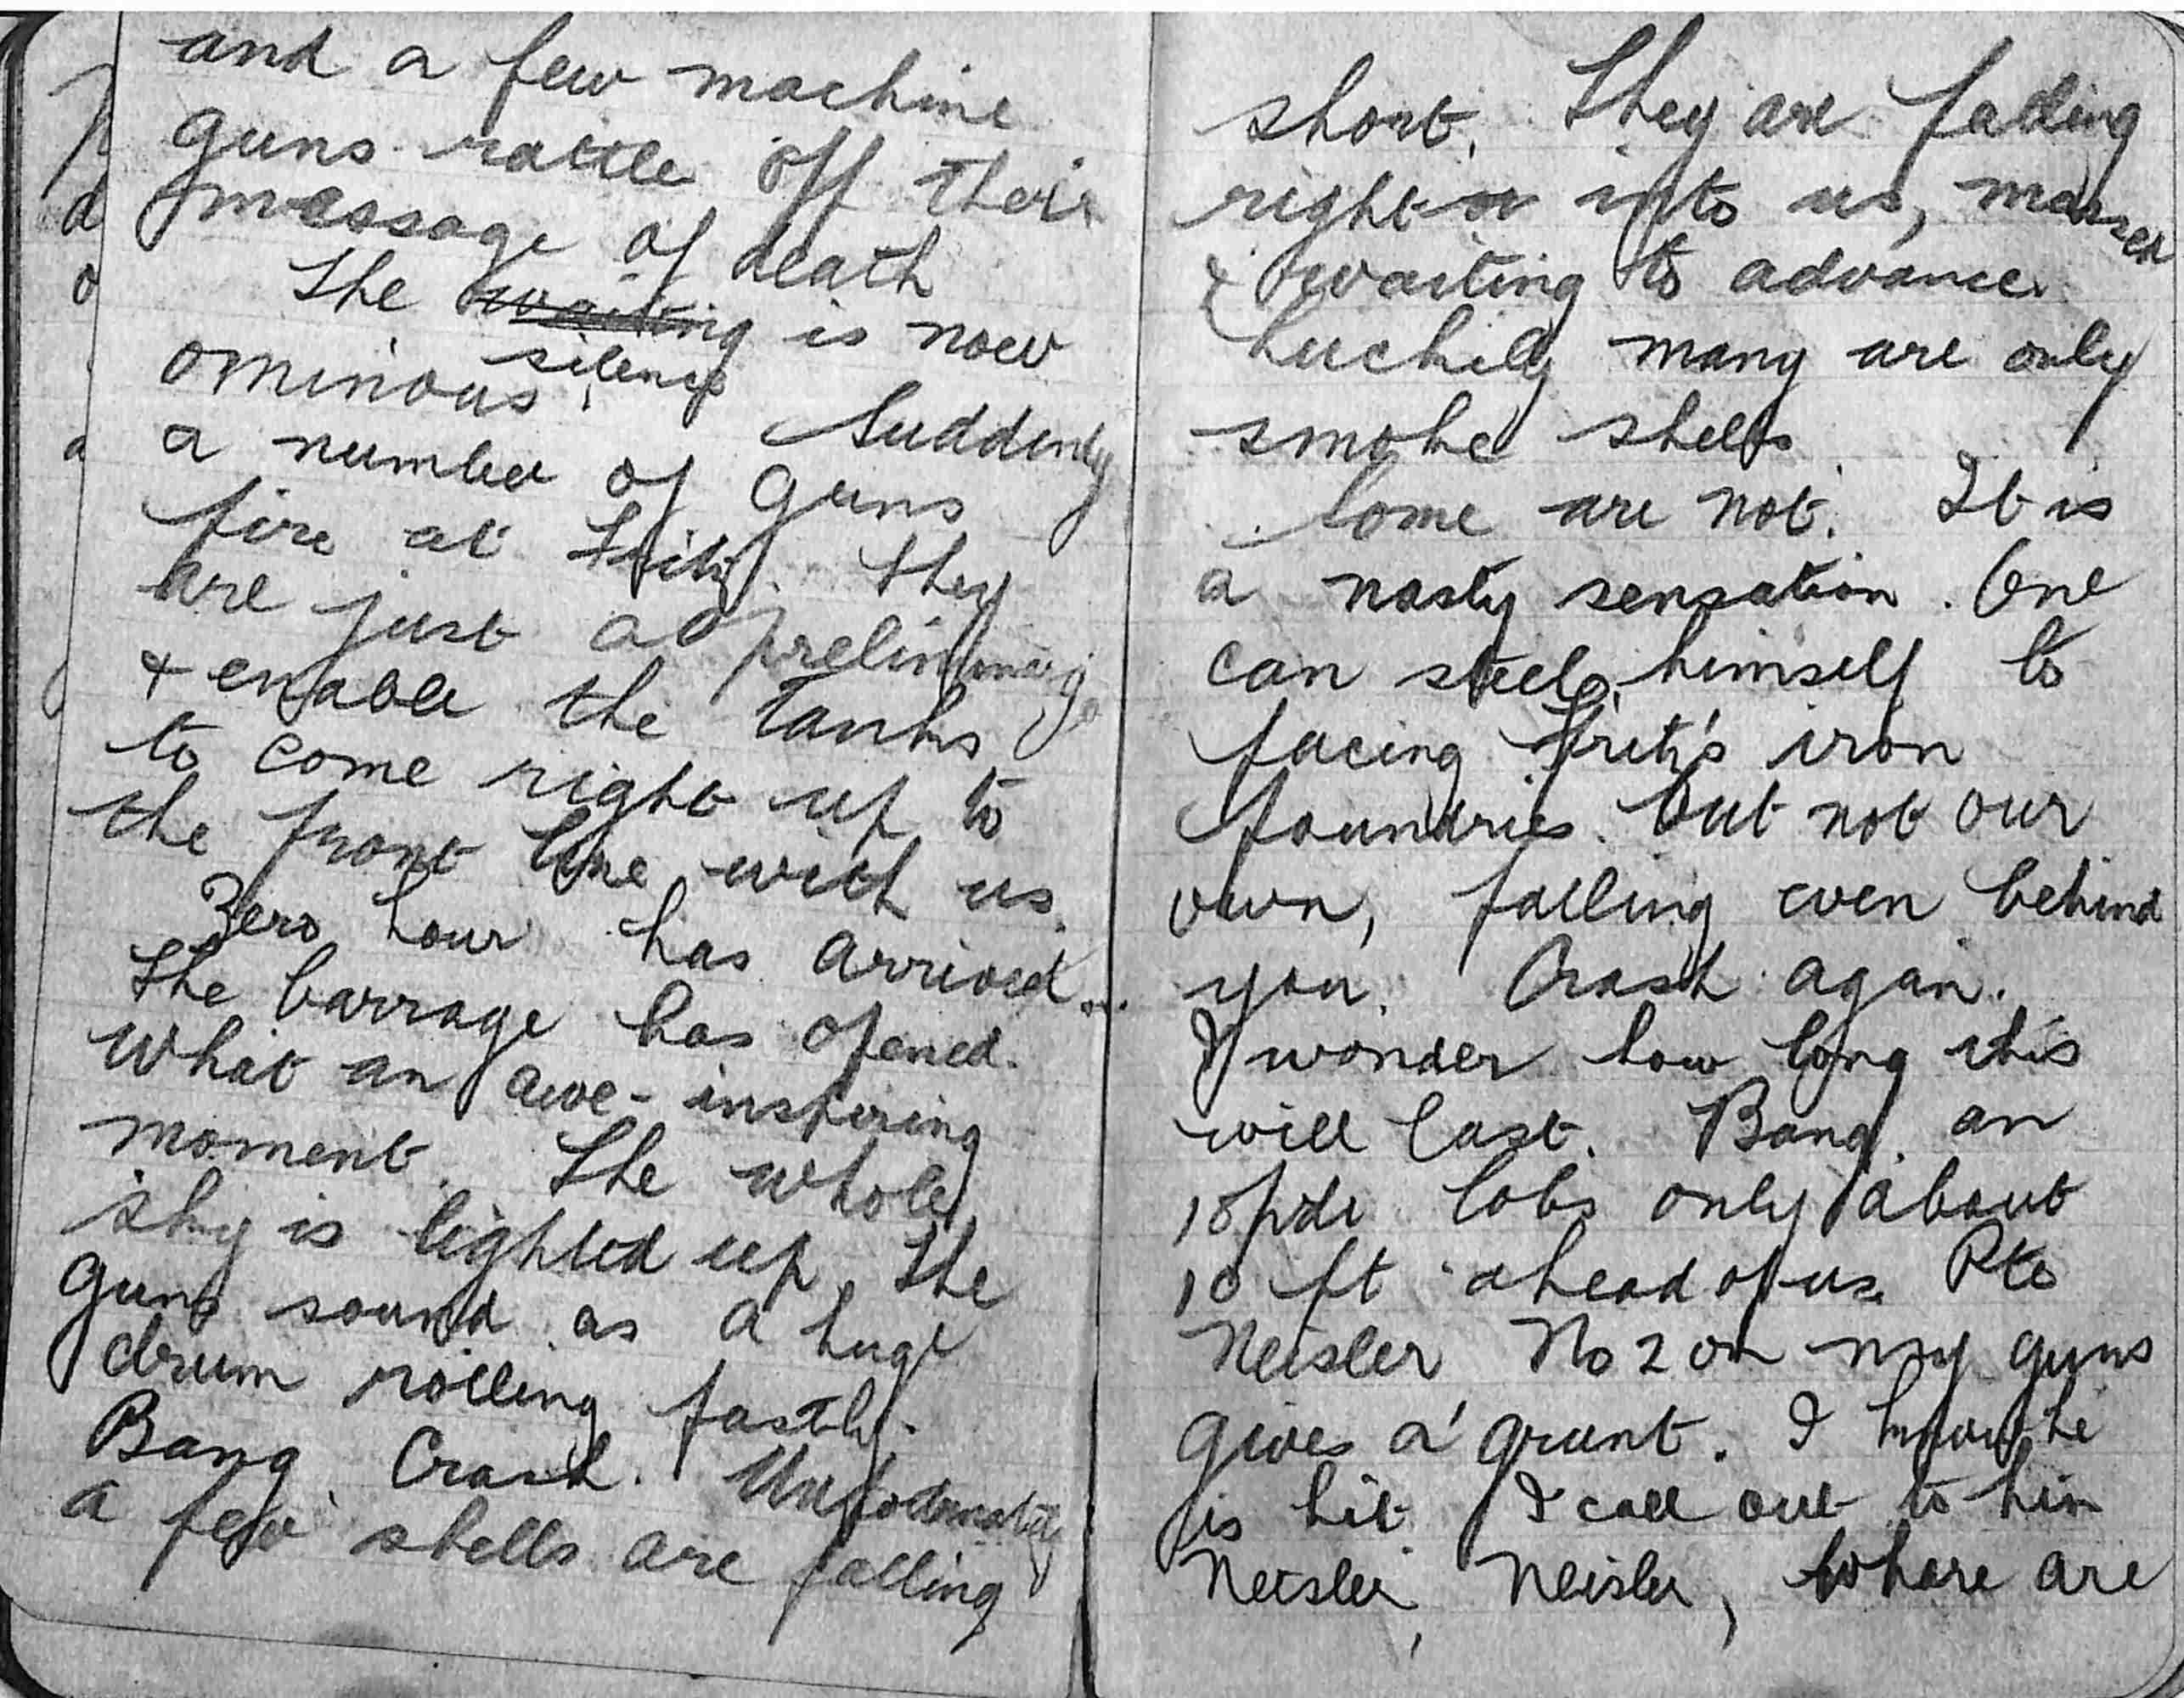 and a few machine
guns rattle off their
message of death
The waiting is now
silence
ominous. Suddenly
a number of guns
fire at Fritz. They
are just a preliminary
& enable the Tanks
to come right up to
the front line with us.
Zero hour has arrived...
The barrage has opened.
What an awe-inspiring
moment. The whole
sky is lighted up. The
guns sound as a huge
drum rolling fastly.
Bang. Crash. Unfortunately
a few shells are falling
short. They are
right into us, massed
& waiting to advance.
Luckily many are only
smoke shells.
Some are not. It is
a nasty sensation. One
can steel himself to
facing Fritz's iron
foundries but not our
own, falling even behind
you. Crash again.
I wonder how long this
will last. Bang, an
18pdr lobs only about
10 ft ahead of us. Pte
Neisler No 2 on my guns
gives a grunt. I know he
is hit. I call out to him
Neisler, Neisler, where are